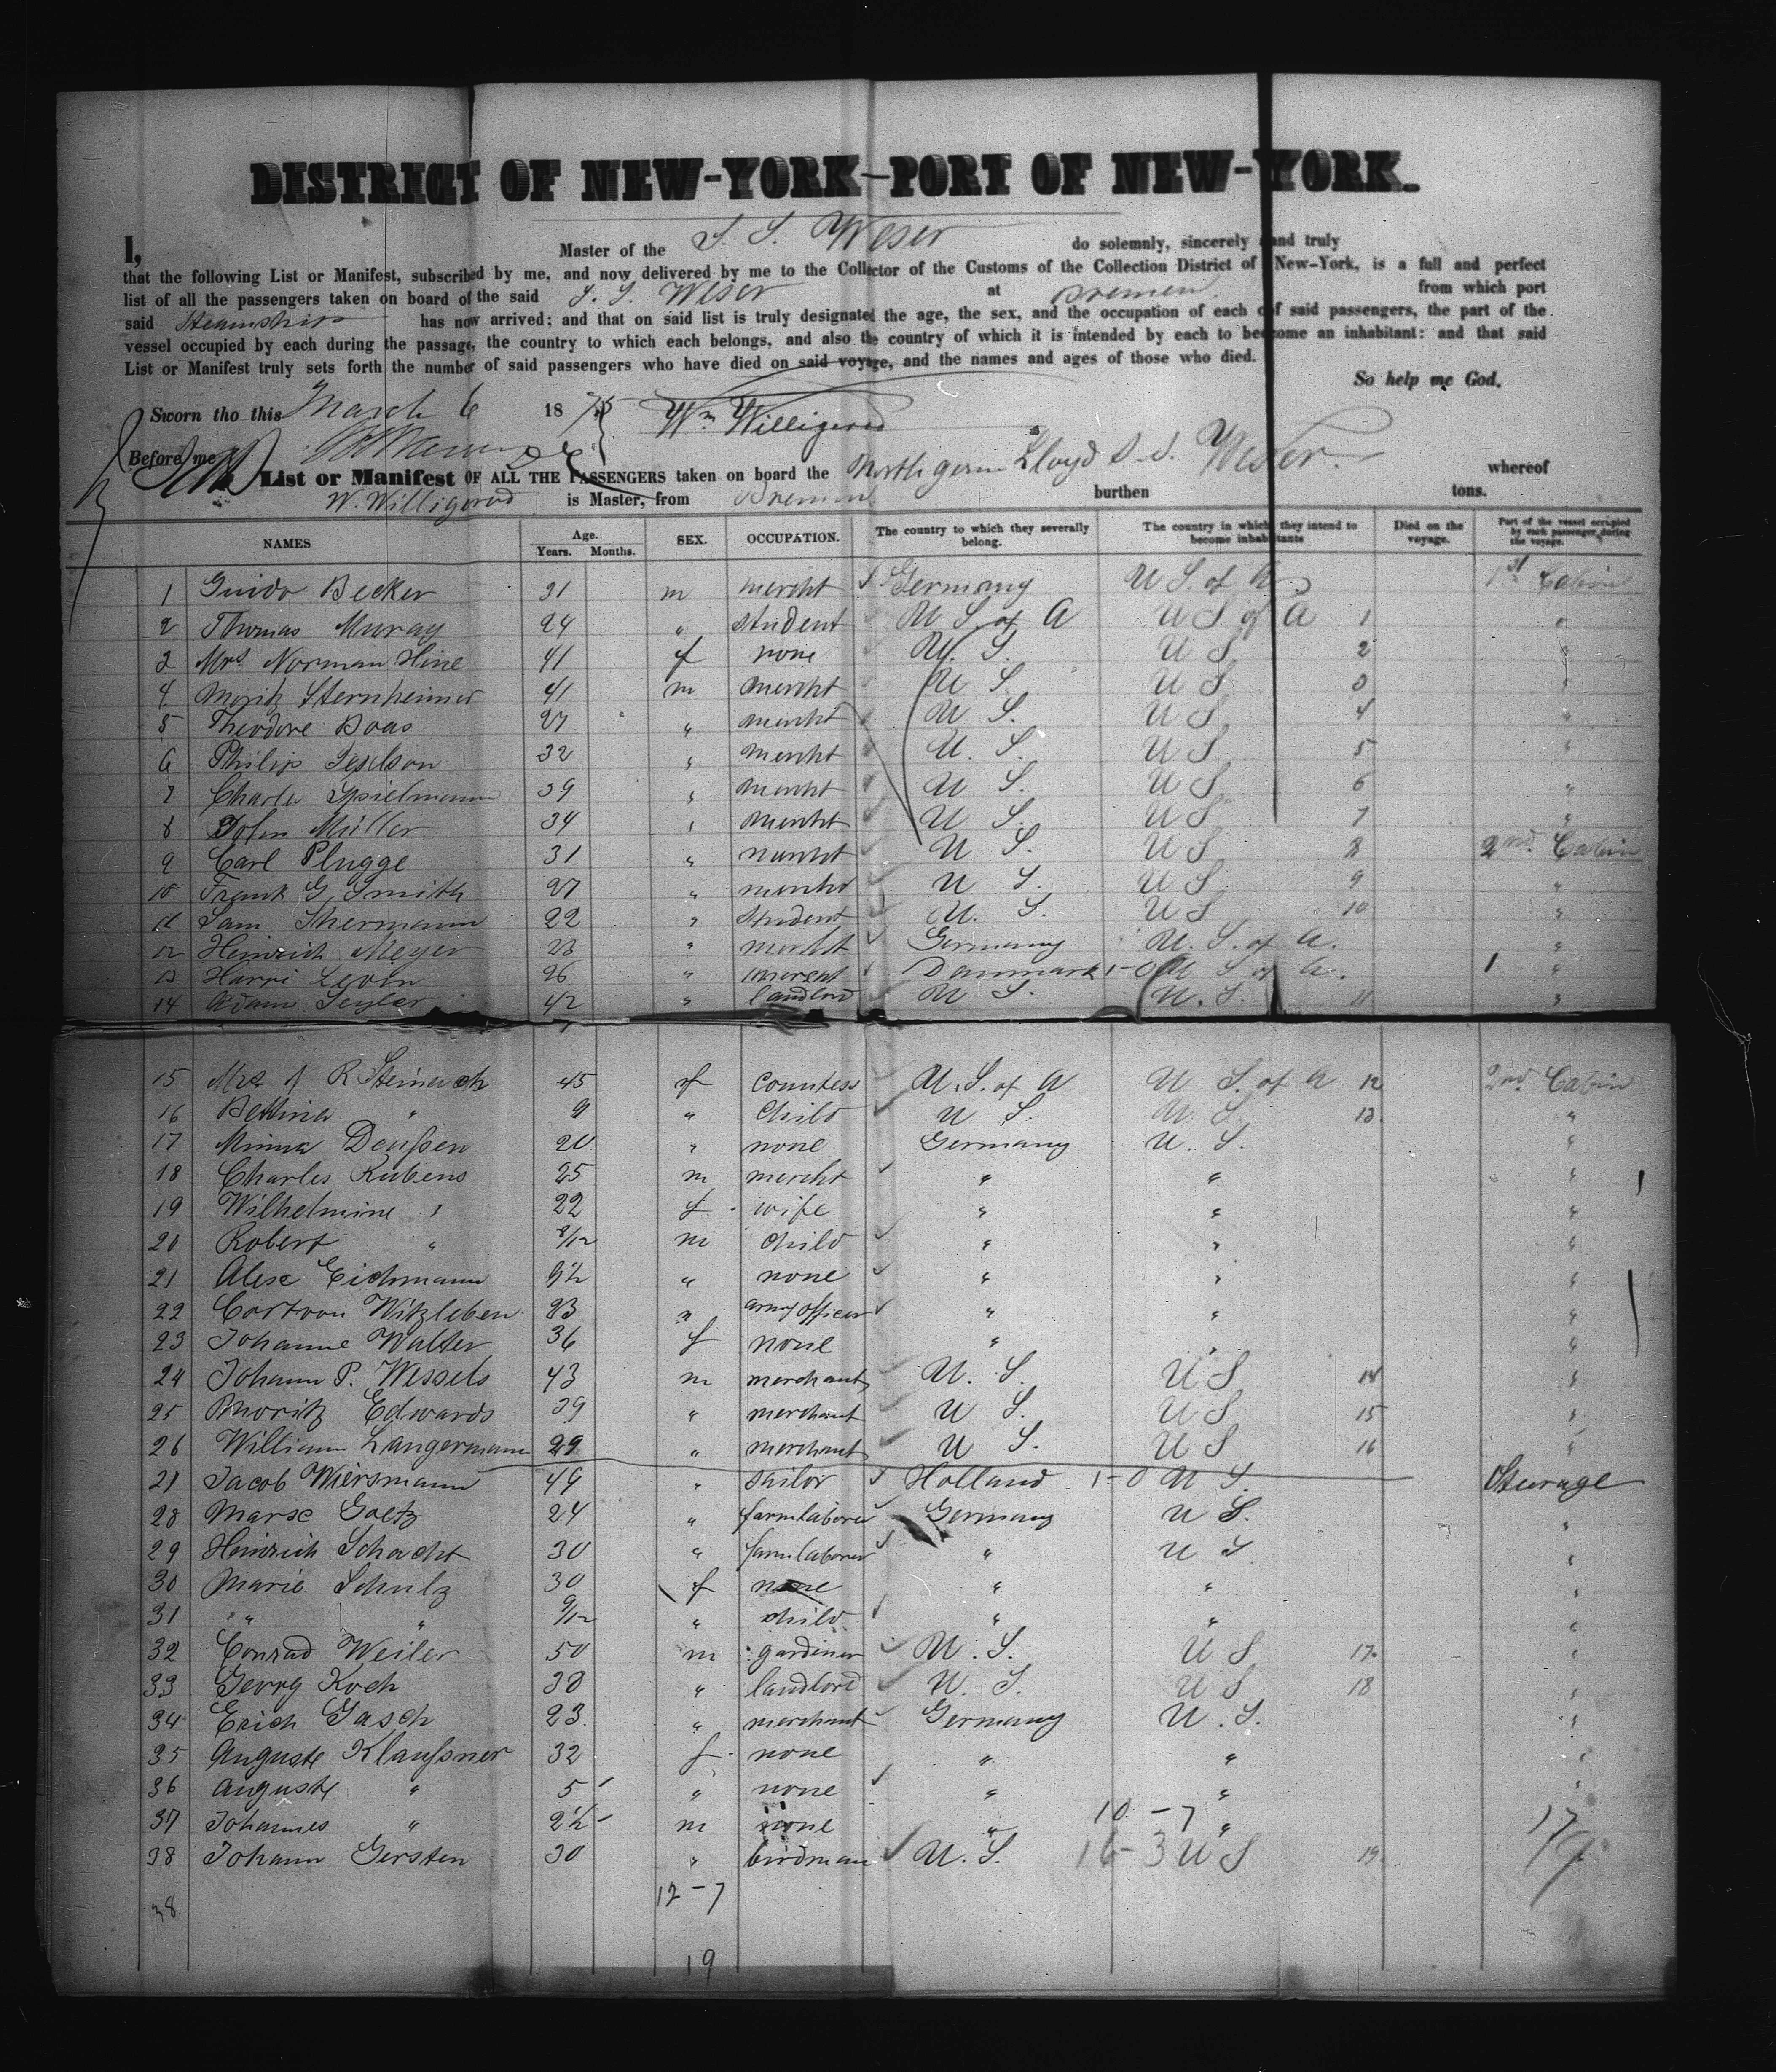 DISTRICT OF NEW-YORK—PORT OF NEW-YORK.
I, Master of the S. S. Weser do solemnly, sincerely and truly
that the following List or Manifest, subscribed by me, and now delivered by me to the Collector of the Customs of the Collection District of New-York, is a full and perfect
list of all the passengers taken on board of the said S. S. Weser at Bremen from which port
said Steamship has now arrived; and that on said list is truly designated the age, the sex, and the occupation of each of said passengers, the part of the
vessel occupied by each during the passage, the country to which each belongs, and also the country of which it is intended by each to become an inhabitant: and that said
List or Manifest truly sets forth the number of said passengers who have died on said voyage, and the names and ages of those who died.
So help me God.
Sworn tho this March 6 1875 Wm Willigerod
Before me
List or Manifest OF ALL THE PASSENGERS taken on board the North germ Lloyd S. S. Weser. whereof
W. Willigerod is Master, from Bremen burthen tons.
NAMES Age. Years. Months. SEX. OCCUPATION. The country to which they severally belong. The country in which they intend to become inhabitants Died on the voyage. Part of the vessel occupied by each passenger during the voyage.
1 Guido Becker 31 m mercht Germany U S. of A 1st Cabin
2 Thomas Muray 24 " student U S. of A U S. of A 1 "
3 Mrs Norman Hine 41 f none U. S. U S 2 "
4 Moritz Sternheimer 41 m mercht U S. U S 3 "
5 Theodore Boas 27 " mercht U S. U S 4 "
6 Philip 32 " mercht U. S. U S 5 "
7 Charles Spielmann 39 " mercht U S. U S 6 "
8 John Müller 34 " mercht U S. U S 7 "
9 Carl Plugge 31 " mercht U S. U S 8 2nd Cabin
10 Frank G. Smith 27 " mercht U S. U S 9 "
11 Sam Shermann 22 " student U. S. U S 10 "
12 Heinrich Meyer 23 " mercht Germany U. S. of A. "
13 Harri Levin 26 " Danmark 1-0 U S of A. 1 "
14 Adam Seyler 42 " landlord U S. U. S. 11 "
15 R Steinach 45 f Countess U. S. of A U S. of A 12 2nd Cabin
16 Bettina " 9 " Child U S. U. S. 13 "
17 Minna Deußen 20 " none Germany U. S. "
18 Charles Rubens 25 m mercht " " "
19 Wilhelmine " 22 f wife " " "
20 Robert " 8/12 m child " " "
21 Alex Eichmann 9½ " none " " "
22 von Witzleben 23 " army officer " " "
23 Johanne Walter 36 f none " " "
24 Johann P. Wessels 43 m merchant U. S. U S 14 "
25 Moritz Edwards 39 " merchant U S. U S 15 "
26 William Langermann 29 " merchant U S. U S 16 "
27 Jacob Wiersmann 44 " sailor Holland 1-0 U S. Steerage
28 Marx Goetz 24 " farmlaborer Germany U S. "
29 Heinrich Schacht 30 " farmlaborer " U S "
30 Marie Schulz 30 f none " " "
31 " " 9/12 " child " " "
32 Conrad Weiler 50 m gardiner U. S. U S 17 "
33 Georg Koch 38 " landlord U. S. U S 18 "
34 Erich Gasch 23 " merchant Germany U. S. "
35 Auguste Klaußner 32 f none " " "
36 Auguste " 5 " none " " "
37 Johannes " 2½ m none " 10-7 " 17
38 Johann Gersten 30 " birdman U. S. 16-3 U S 19
38 12-7
19